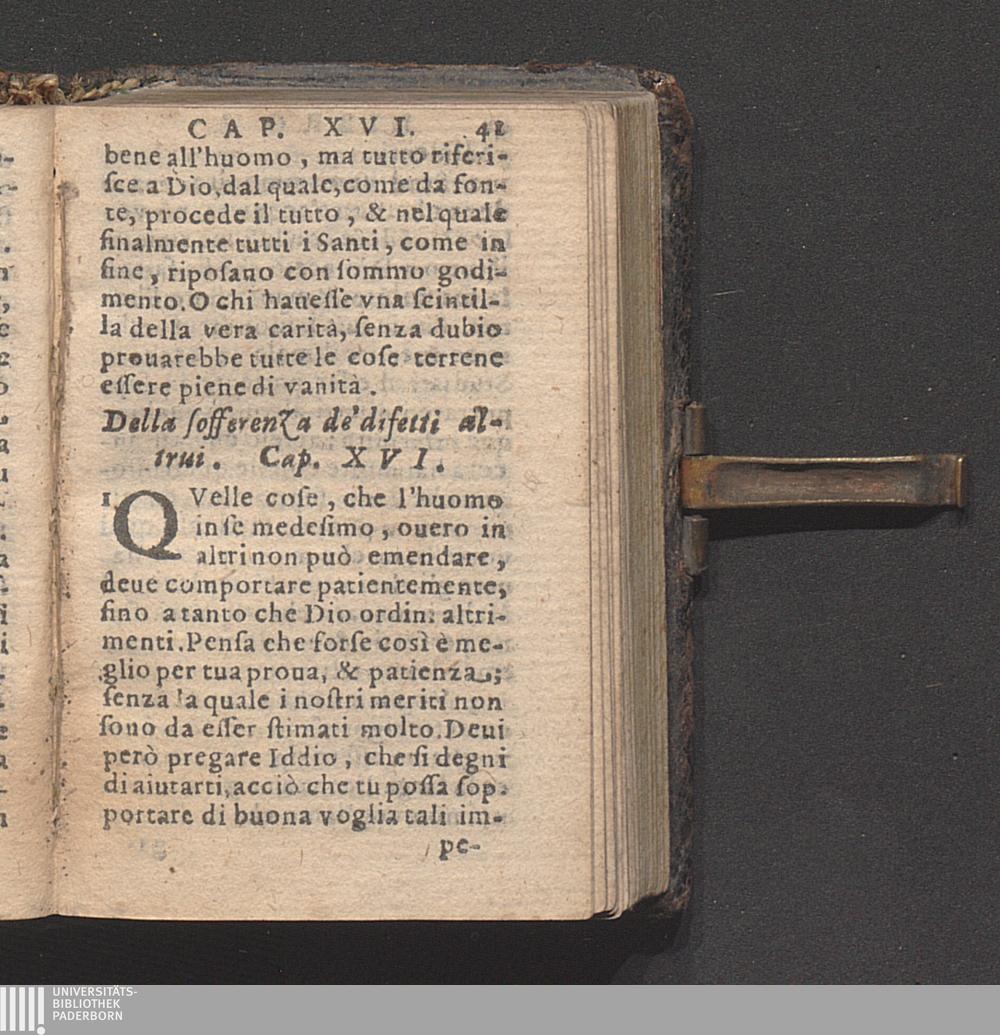 CAP. XVI. 41
bene all'huomo, ma tutto riferi-
ſce a Dio, dal quale, come da fon-
te, procede il tutto, & nel quale
finalmente tutti i Santi, come in
fine, ripoſano con ſommo godi-
mento. O chi haueſſe vna ſcintil-
la della vera carità, ſenza dubio
prouarebbe tutte le coſe terrene
eſſere piene di vanità.
Della ſofferenza de' difetti al-
trui. Cap. XVI.
1. QVelle coſe, che l'huomo
in ſe medeſimo, ouero in
altri non può emendare,
deue comportare patientemente,
fino a tanto che Dio ordini altri-
menti. Penſa che forſe così è me-
glio per tua proua, & patienza;
ſenza la quale i noſtri meriti non
ſono da eſſer ſtimati molto. Deui
però pregare Iddio, che ſi degni
di aiutarti, acciò che tu poſſa ſop-
portare di buona voglia tali im-
pe-
UNIVERSITÄTS-
BIBLIOTHEK
PADERBORN